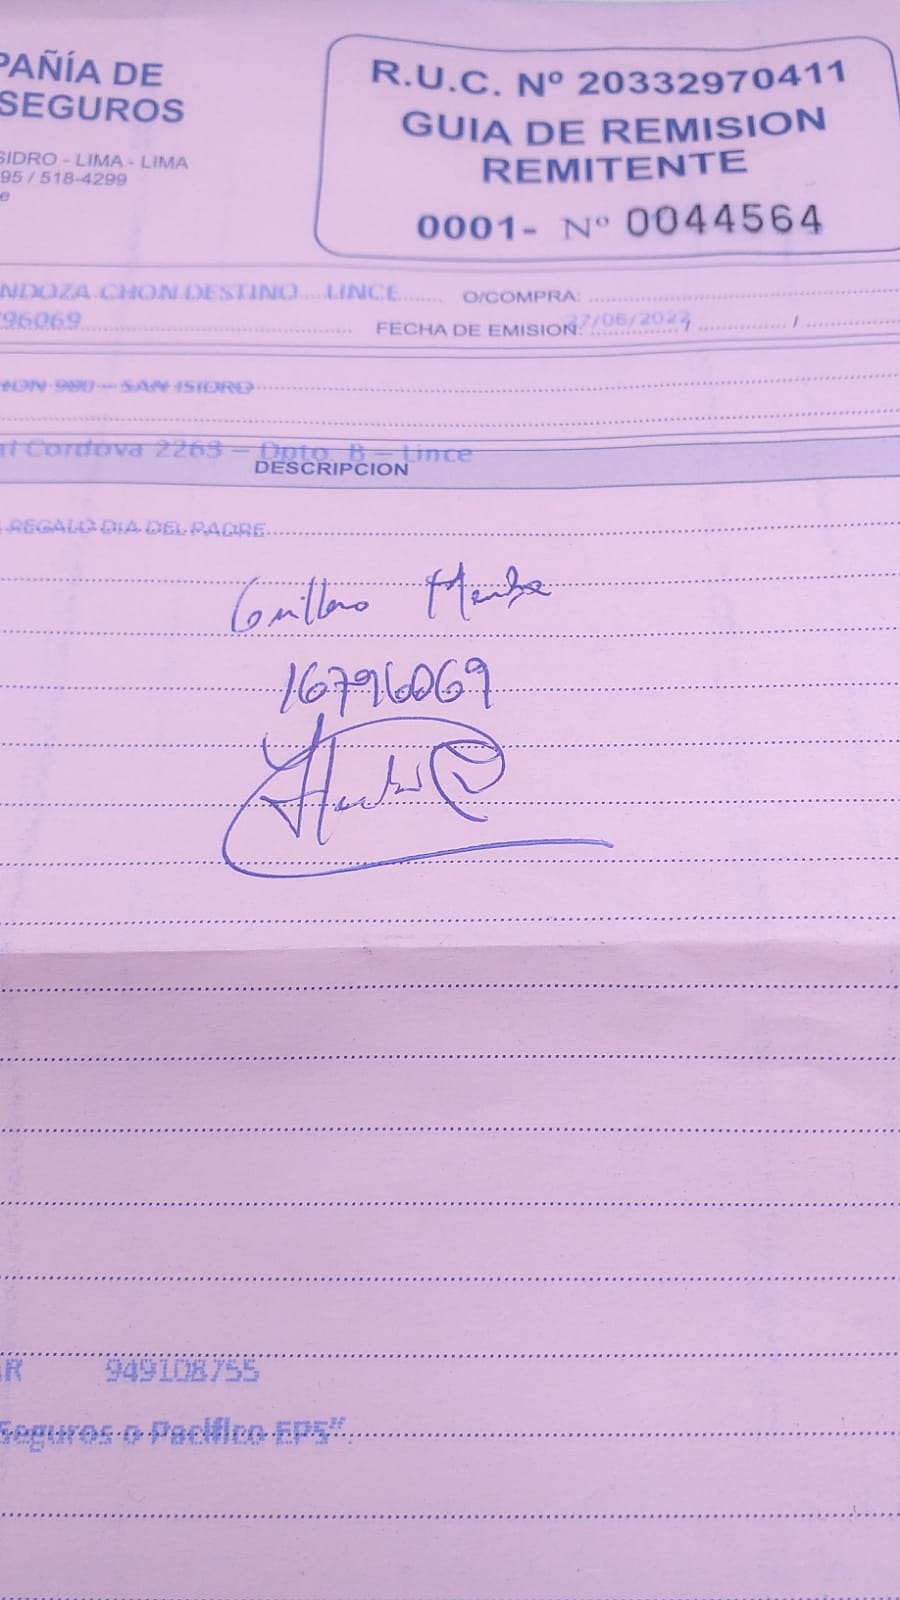 PAÑÍA DE
SEGUROS
R.U.C. Nº 20332970411
GUIA DE REMISION
REMITENTE
0001- Nº 0044564
SIDRO - LIMA - LIMA
95 / 518-4299
e
NDOZA CHON DESTINO LINCE
O/COMPRA:
96069
FECHA DE EMISION: 27/06/2022 / /
980 - SAN ISIDRO
al Cordova 2263 - Dpto. B - Lince
DESCRIPCION
REGALO DIA DEL PADRE
16796069
R 949108755
Seguros o Pacífico EPS".